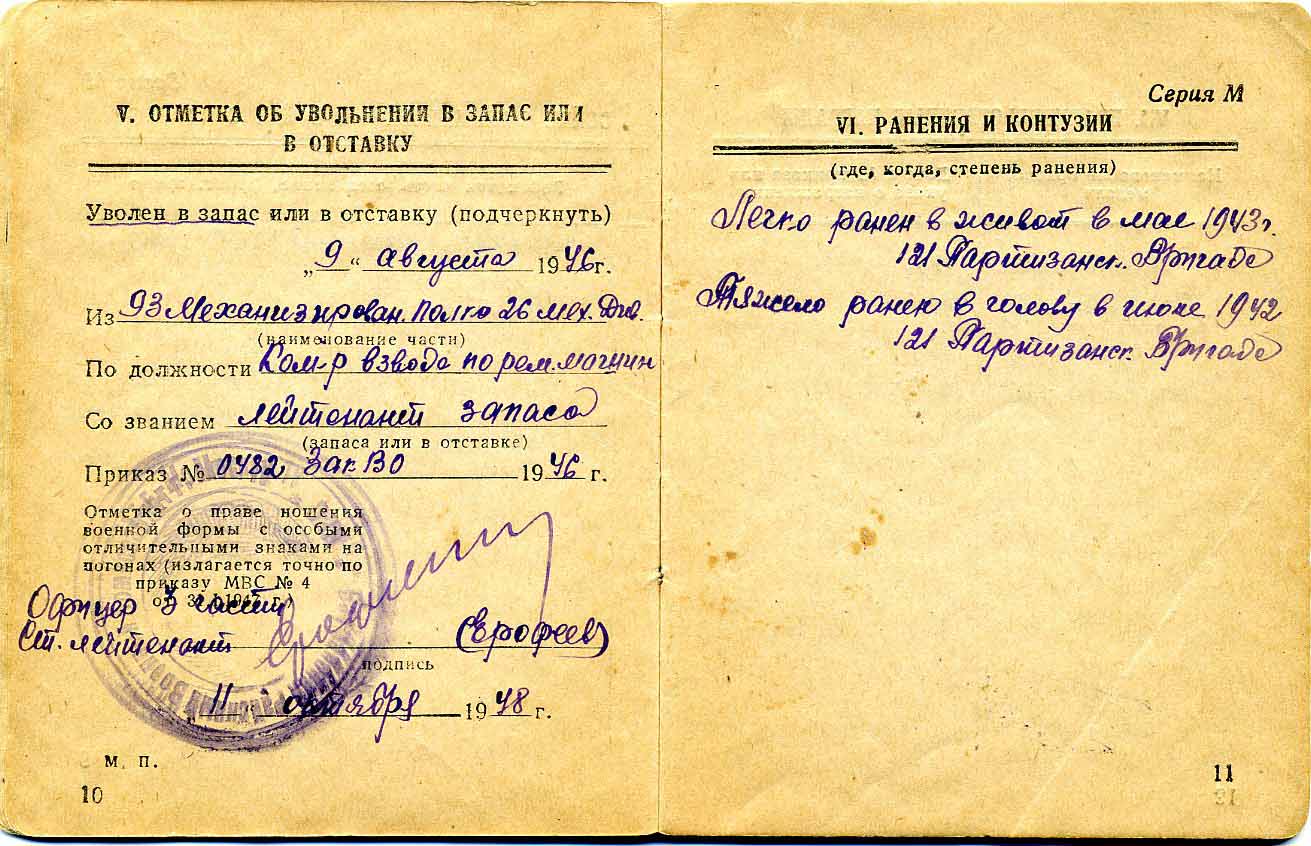 V. ОТМЕТКА ОБ УВОЛЬНЕНИИ В ЗАПАС ИЛИ
В ОТСТАВКУ
Уволен в запас или в отставку (подчеркнуть)
„9“ августа 1946 г.
Из 93 Механизирован. полка 26 мех. Див.
(наименование части)
По должности Ком-р взвода по рем. машин
Со званием лейтенант запаса
(запаса или в отставке)
Приказ № 0482 ЗакВО 1946 г.
Отметка о праве ношения
военной формы с особыми
отличительными знаками на
погонах (излагается точно по
приказу МВС № 4
1947 г.)
Офицер 3 части
Ст. лейтенант (Ерофеев)
подпись
„11“ октября 1948 г.
М. П.
10
Серия М
VI. РАНЕНИЯ И КОНТУЗИИ
(где, когда, степень ранения)
Легко ранен в живот в мае 1943 г.
121 Партизанск. Бригада
Тяжело ранен в голову в июне 1942
121 Партизанск. Бригада
11